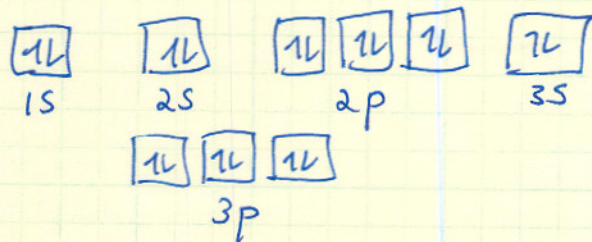 1L 1L 1L 1L 1L 1L
1S 2S 2p 3S
1L 1L 1L
3p